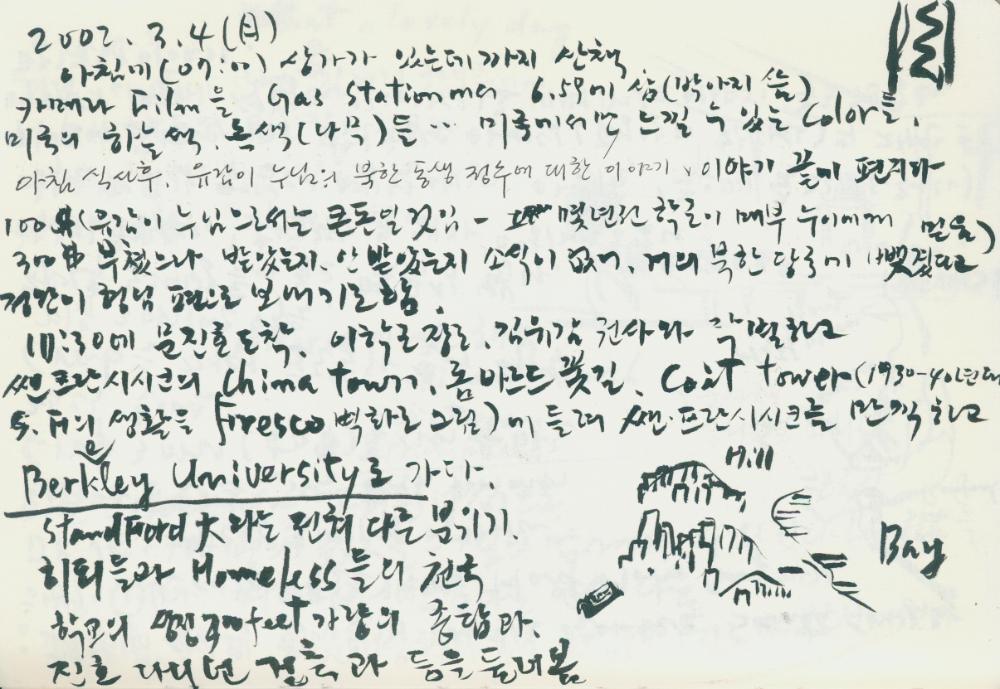 2002. 3. 4 (日)
아침에 (07:00) 상가가 있는데까지 산책
카메라 Film을 Gas Station에서 6.5불에 삼 (박아지 씀)
미국의 하늘색. 녹색(나무)들 … 미국에서만 느낄 수 있는 Color들.
아침 식사후 유감이 누님의 북한 동생 정수에 대한 이야기, 이야기 끝에 편지와
100$ (유감이 누님으로서는 큰돈일 것임 - 몇년전 학로이 매부 누이에게 믿을)
300$ 부쳤으나 받았는지 안 받았는지 소식이 없음. 거의 북한 당국에 뺏겼다고
형님 편으로 보내기로 함.
10:30에 문진호 도착. 이학로 장로. 김유감 권사와 작별하고
쌘프란시시코의 China town. 롬바르드 꽃길. Coit tower (1930-40년대
S.F의 생활을 Fresco 벽화로 그림)에 들려 쌘.프란시시크를 만끽하고
Berkley University로 가다.
StandFord 大와는 전혀 다른 분위기.
히피들과 Homeless들의 천국
학교의 feet가량의 종탑과.
진호 다니던 건축과 등을 들러봄
Hill
Bay